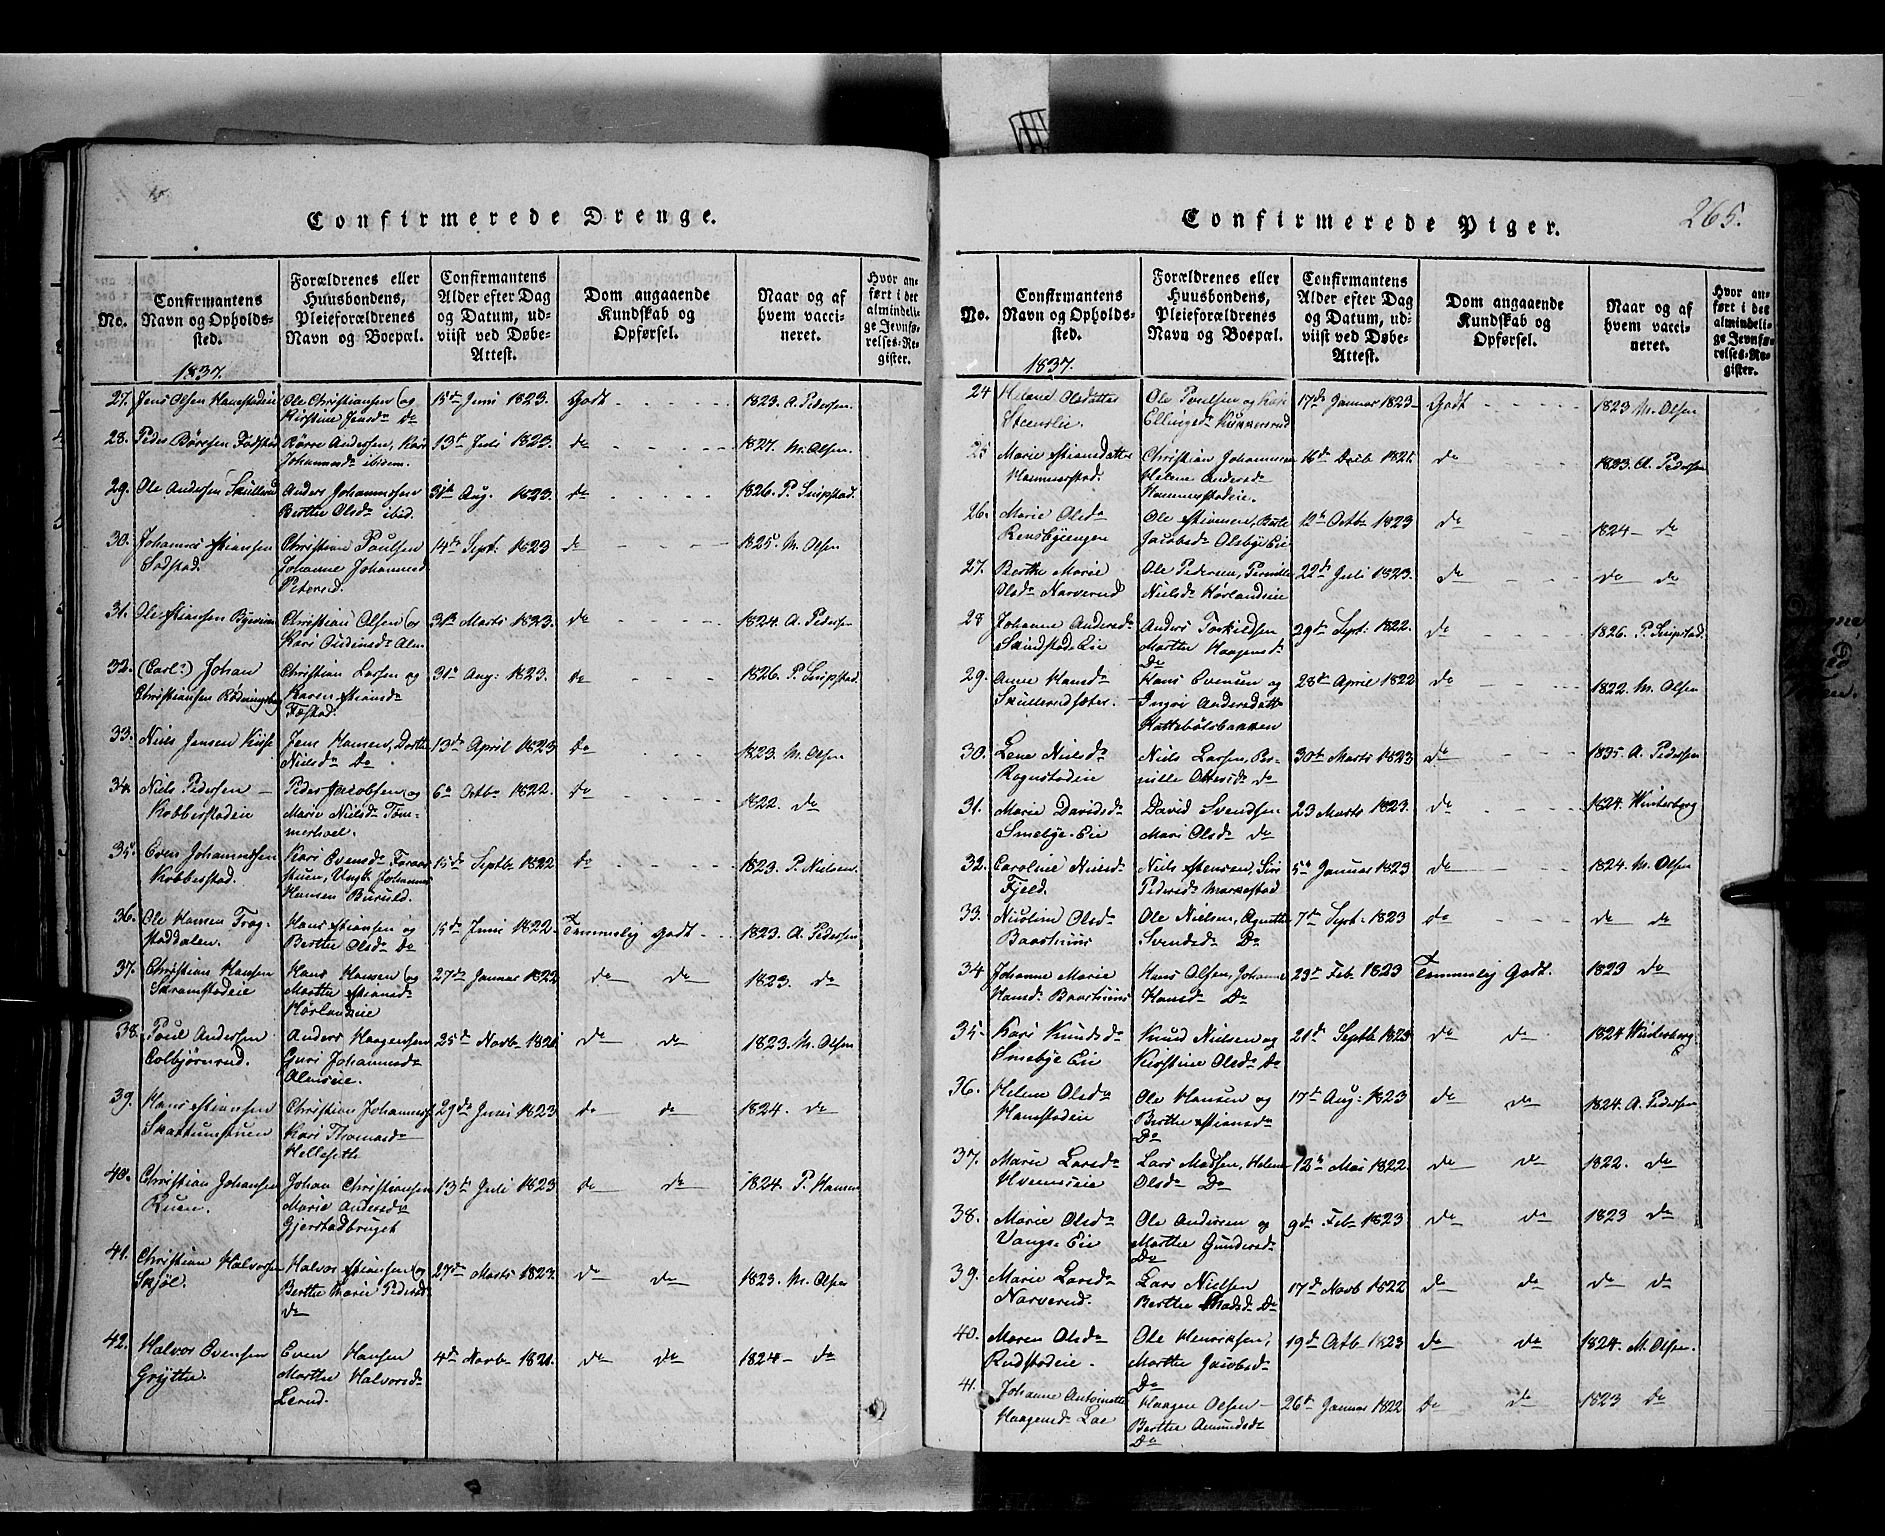 Confirmerede Drenge.
No.
Confirmantens
Navn og Opholds-
sted.
Forældrenes eller
Huusbondens,
Pleieforældrenes
Navn og Boepæl.
Confirmantens
Alder efter Dag
og Datum, ud-
viist ved Døbe-
Attest.
Dom angaaende
Kundskab og
Opførsel.
Naar og af
hvem vacci-
neret.
Hvor an-
ført i det
almindeli-
ge Jevnfø-
relses-Re-
gister.
1837.
27. Jens Olsen
Ole Christiansen og
Kirstine Jensd. Do
15de Juni 1823.
Godt
1823. A. Pedersen
28. Peder Børresen Fodstad
Børre Andersen, Kari
Johannesd. ibidem.
13de Juli 1823.
do
1827. M. Olsen.
29. Ole Andersen Skullerud
Anders Johannessen
Berthe Olsd. ibid.
31te Aug. 1823.
do
1826. P. Snipstad.
30. Johannes Stiansen
Sodstad.
Christian Poulsen
Johanne Johannesd.
14de Sept. 1823
do
1825 M. Olsen
31. Ole Stiansen
Christian Olsen og
Kari
31te Marts 1823.
do
1824. A. Pedersen
32. (Carl?) Johan
Christiansen
Christian Larsen og
Karen Stiansd.
31te Aug. 1823.
do
1826. P. Snipstad.
33. Niels Jensen Kise
Jens Hansen, Dorthe
Nielsd. Do
13de April 1823
Do
1823. M. Olsen
34. Niels Pedersen
Kobberstadeie
Peder Jacobsen og
Marie Nielsd. Tom-
merhoel.
6te Octb. 1822.
do
1822. do
35. Even Johannesen
Kobberstad.
Kari Evensd.
Ungk. Johannes
Hansen Burud.
15de Septb. 1822
do
1823. P. Nielsen.
36. Ole Hansen Frog-
staddalen.
Hans Stiansen og
Berthe Olsd. Do
15de Juni 1822.
Temmelig godt
1823. A. Pedersen
37. Christian Hansen
Skramstadeie
Hans Hansen og
Marthe Stiansd.
Hørlandseie
27de Januar 1822
do do
1823. do
38. Poul Andersen
Colbjørnrud.
Anders Haagensen
Guri Johannesd.
Almseie.
25de Novb. 1821
do do
1823. M. Olsen
39. Hans Stiansen
Skattumstuen
Christian Johannesen
Kari Thomasd.
Hellesette
29de Juni 1823
do do
1824. do
40. Christian Johansen
Ruen.
Johan Christiansen
Marie Andersd.
Gjerstadbruget
13de Juli 1823
do do
1824. P. Hansen
41. Christian Halvorsen
Skjøl.
Halvor Stiansen og
Berthe Marie Pedersd.
do
27de Marts 1823.
do do
1823. M. Olsen
42. Halvor Evensen
Grytte.
Even Hansen
Marthe Halvorsd.
Lerud.
4de Novb. 1821.
do do
1824 - do
Confirmerede Piger.
265.
No.
Confirmantens
Navn og Opholds-
sted.
Forældrenes eller
Huusbondens,
Pleieforældrenes
Navn og Boepæl.
Confirmantens
Alder efter Dag
og Datum, ud-
viist ved Døbe-
Attest.
Dom angaaende
Kundskab og
Opførsel.
Naar og af
hvem vacci-
neret.
Hvor an-
ført i det
almindeli-
ge Jevnfø-
relses-Re-
gister.
1837.
24 Helene Olsdatter
Steenslie.
Ole Poulsen og Kari
Ellingsd.
17de Januar 1823
Godt
1823 M. Olsen
25 Marie Stiansdatter
Hammerstad.
Christian Johannesen
Helene Andersd.
Hammerstadeie.
16de Decb. 1821.
do
1823. A. Pedersen
26. Marie Olsd.
Rensbyengen
Ole Stiansen,
Jacobsd. Olsbye Eie
12te Octb. 1823
do
1824 - do
27. Berthe Marie
Olsd. Narverud
Ole Pedersen, Pernille
Nielsd. Hørlandseie
22de Juli 1823.
do
do do
28 Johanne Andersd.
Sundstad Eie
Anders Torkildsen
Marthe Haagensd.
Do
29de Sept. 1822.
do
1826. P. Snipstad.
29. Anne Hansd.
Skullerudsæter.
Hans Evensen og
Ingri Andersdatter
28de April 1822
do
1822. M. Olsen
30. Lene Nielsd.
Rognstadeie
Niels Larsen, Per-
nille Olsesd. do
30te Marts 1823
do
1835. A. Pedersen
31. Marie Davidsd.
Smebye-Eie
David Svendsen
Mari Olsd. do
23 Marts 1823.
do
1824. Winterborg
32. Caroline Nielsd.
Fjeld.
Niels Stensen, Siri
Pedersd.
5te Januar 1823
do
1824. M. Olsen
33. Nicoline Olsd.
Baastuens
Ole Nielsen, Agnethe
Svendsd. Do
7de Sept. 1823
do
do do
34 Johanne Marie
Hansd. Baastuens
Hans Olsen, Johanne
Hansd. Do
23de Feb. 1823
Temmelig Godt.
1823 do
35. Kari Knudsd.
Smebye Eie
Knud Nielsen og
Kirstine Olsd. Do
21de Septb. 1823
do do
1824 Winterborg.
36. Helene Olsd.
Hamstadeie
Ole Hansen og
Berthe Stiansd.
Do
17de Aug. 1823
do do
1824. A. Pedersen
37. Marie Larsd.
Hvemseie
Lars Madsen, Helene
Olsd. Do
12te Mai 1822.
do do
1822. do
38. Marie Olsd.
Vangs-Eie
Ole Andersen og
Marthe Gundersd.
Do
9de Feb. 1823
do do
1823 do
39. Marie Larsd.
Narverud.
Lars Nielsen
Berthe Madsd. Do
17de Novb 1822
do do
do do
40. Maren Olsd.
Rudstadeie.
Ole Henriksen,
Marthe Jacobsd.
Do
19de Octb. 1823
do do
1824. M. Olsen.
41. Johanne Antoinette
Haagensd. Loe
Haagen Olsen
Berthe Amundsd.
Do
26de Januar 1822
Do do
1823 do